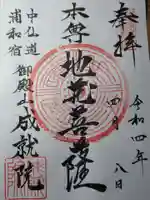 奉拝
令和四年
四月八日
本尊
地蔵菩薩
中仙道
浦和宿
御殿山成就院